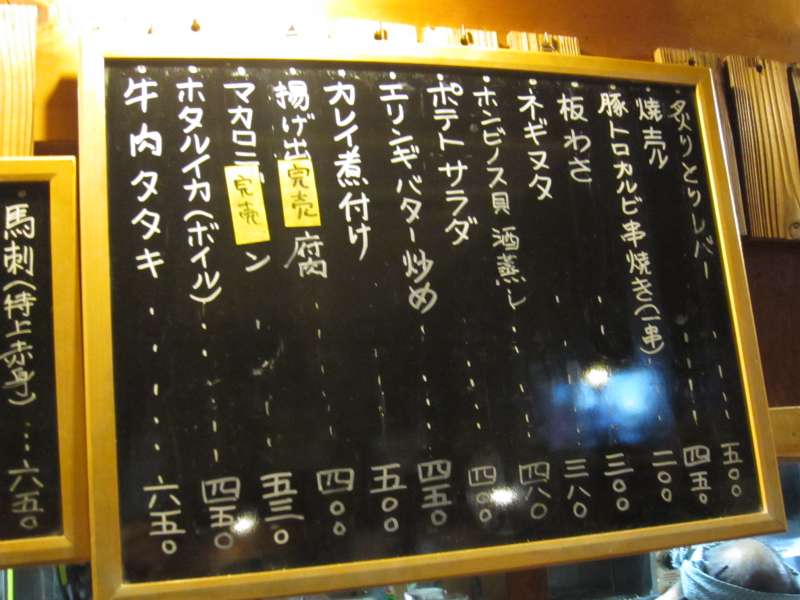 ・炙りとりレバー・・・・五〇〇
・焼売・・・・四五〇
・豚トロカルビ串焼き(一串)・・二〇〇
・板わさ・・・・三〇〇
・ネギヌタ・・・・三八〇
・ホンビノス貝酒蒸し・・・・四八〇
・ポテトサラダ・・・・四〇〇
・エリンギバター炒め・・・・四五〇
・カレイ煮付け・・・・五〇〇
・揚げ出完売腐・・・・四〇〇
・マカロニ完売ン・・・・五三〇
・ホタルイカ(ボイル)・・・・四五〇
・牛肉タタキ・・・・六五〇
馬刺(特上赤身)・・・六五〇